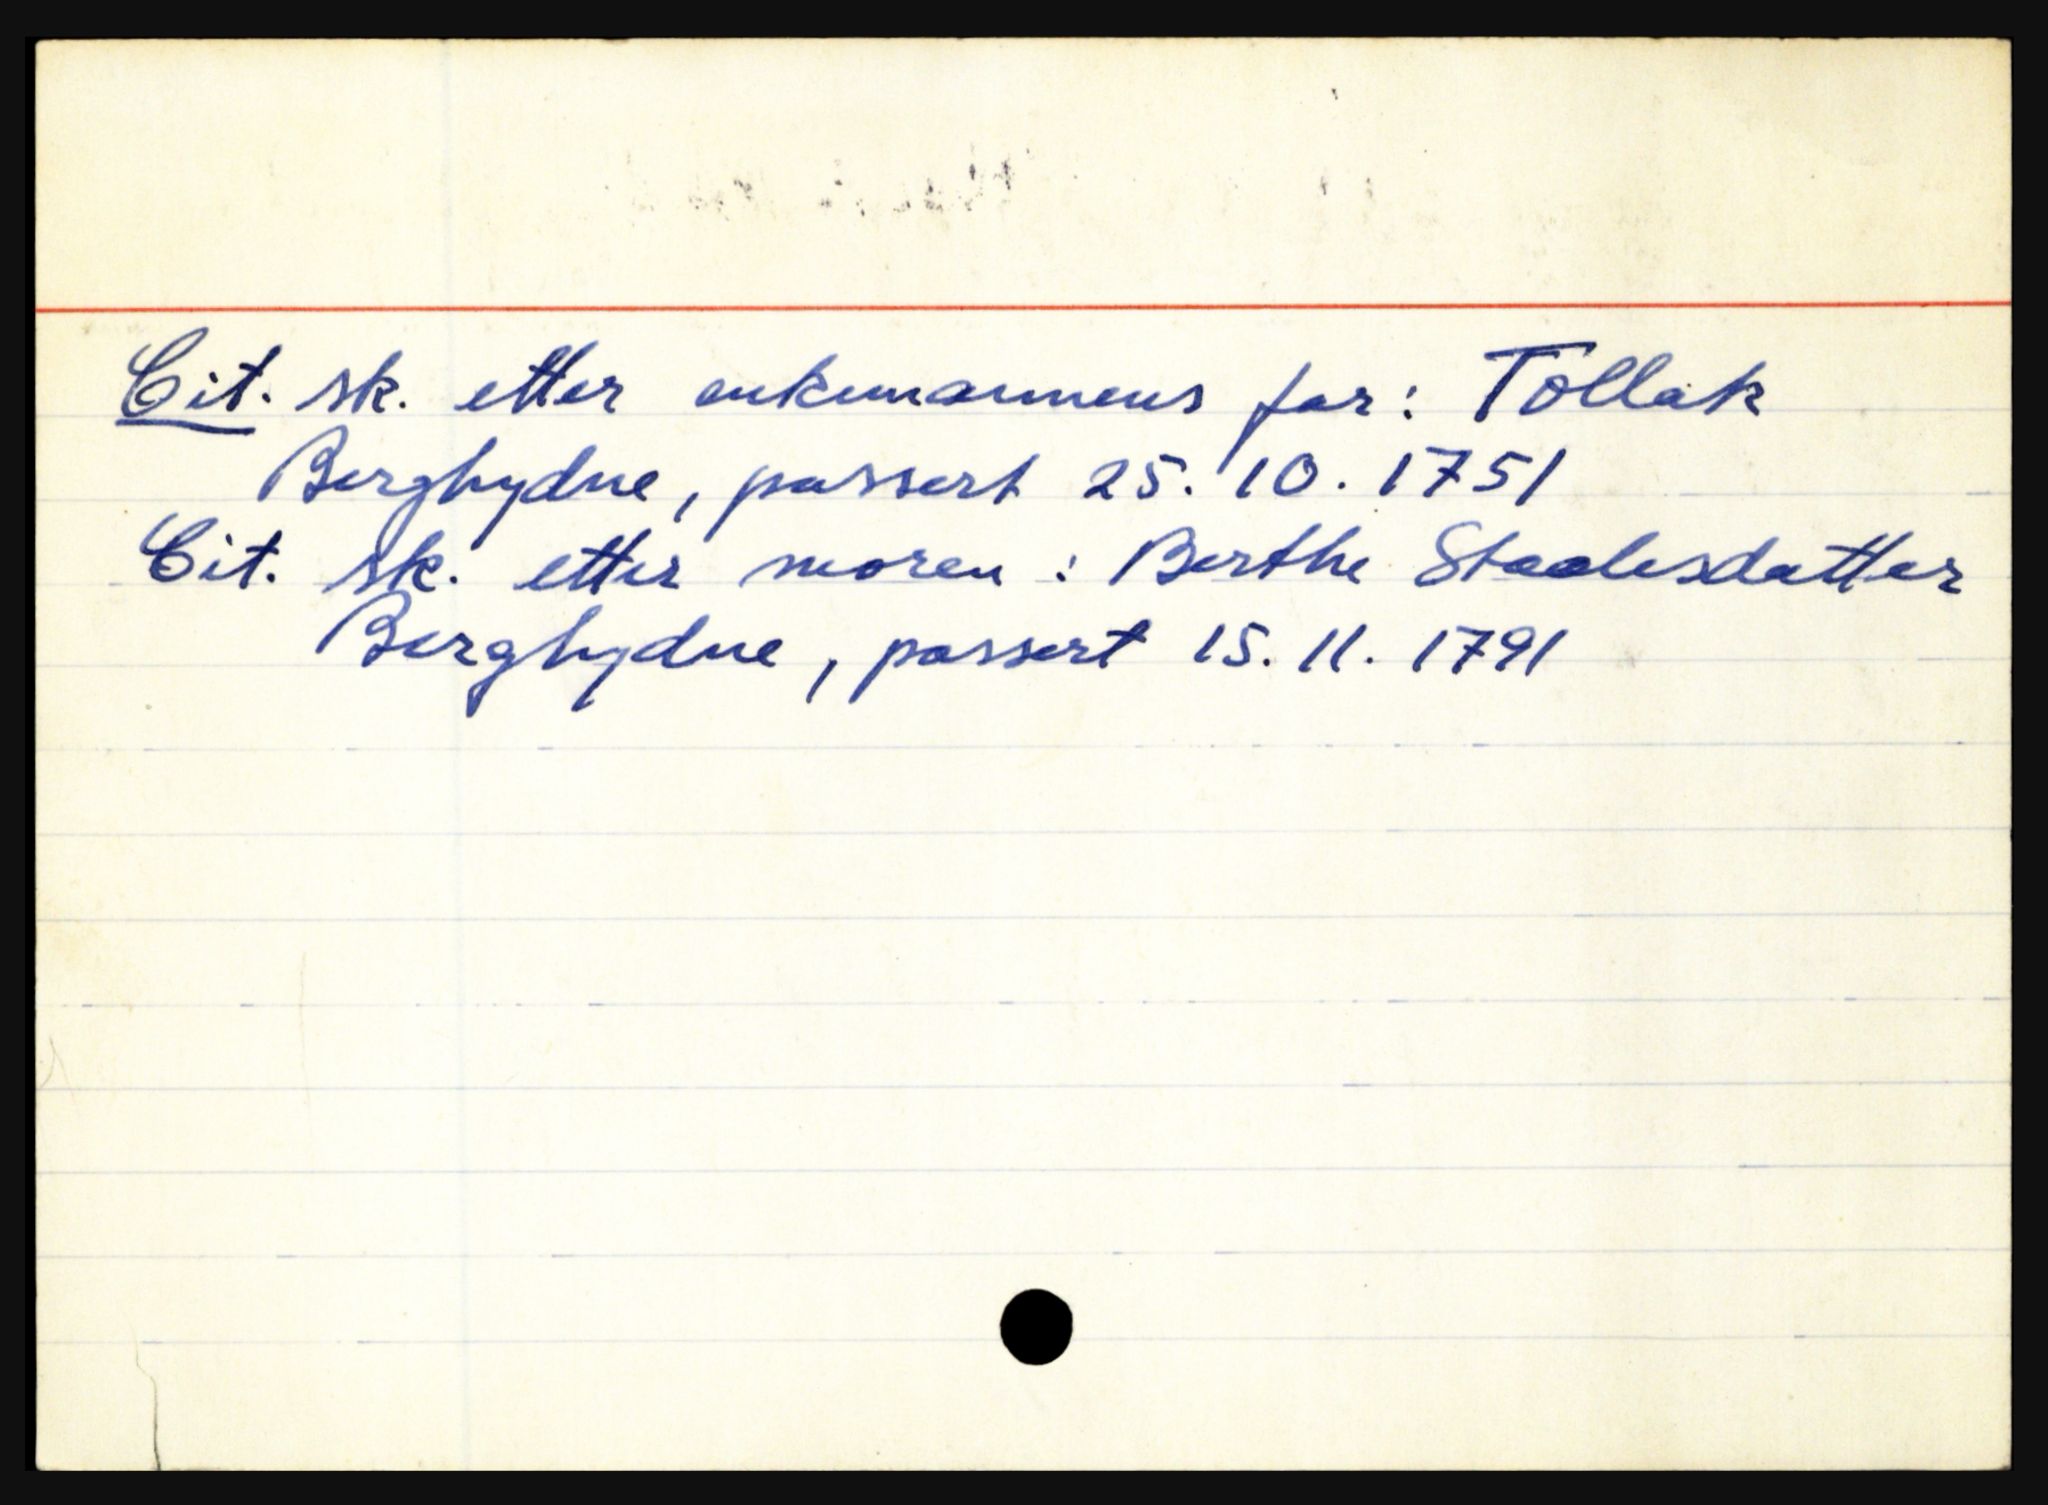 Cit. sk. etter enkemannens far: Tollak
Berghydne, passert 25.10.1751
Cit. sk. etter moren: Berthe Staalesdatter
Berghydne, passert 15.11.1791